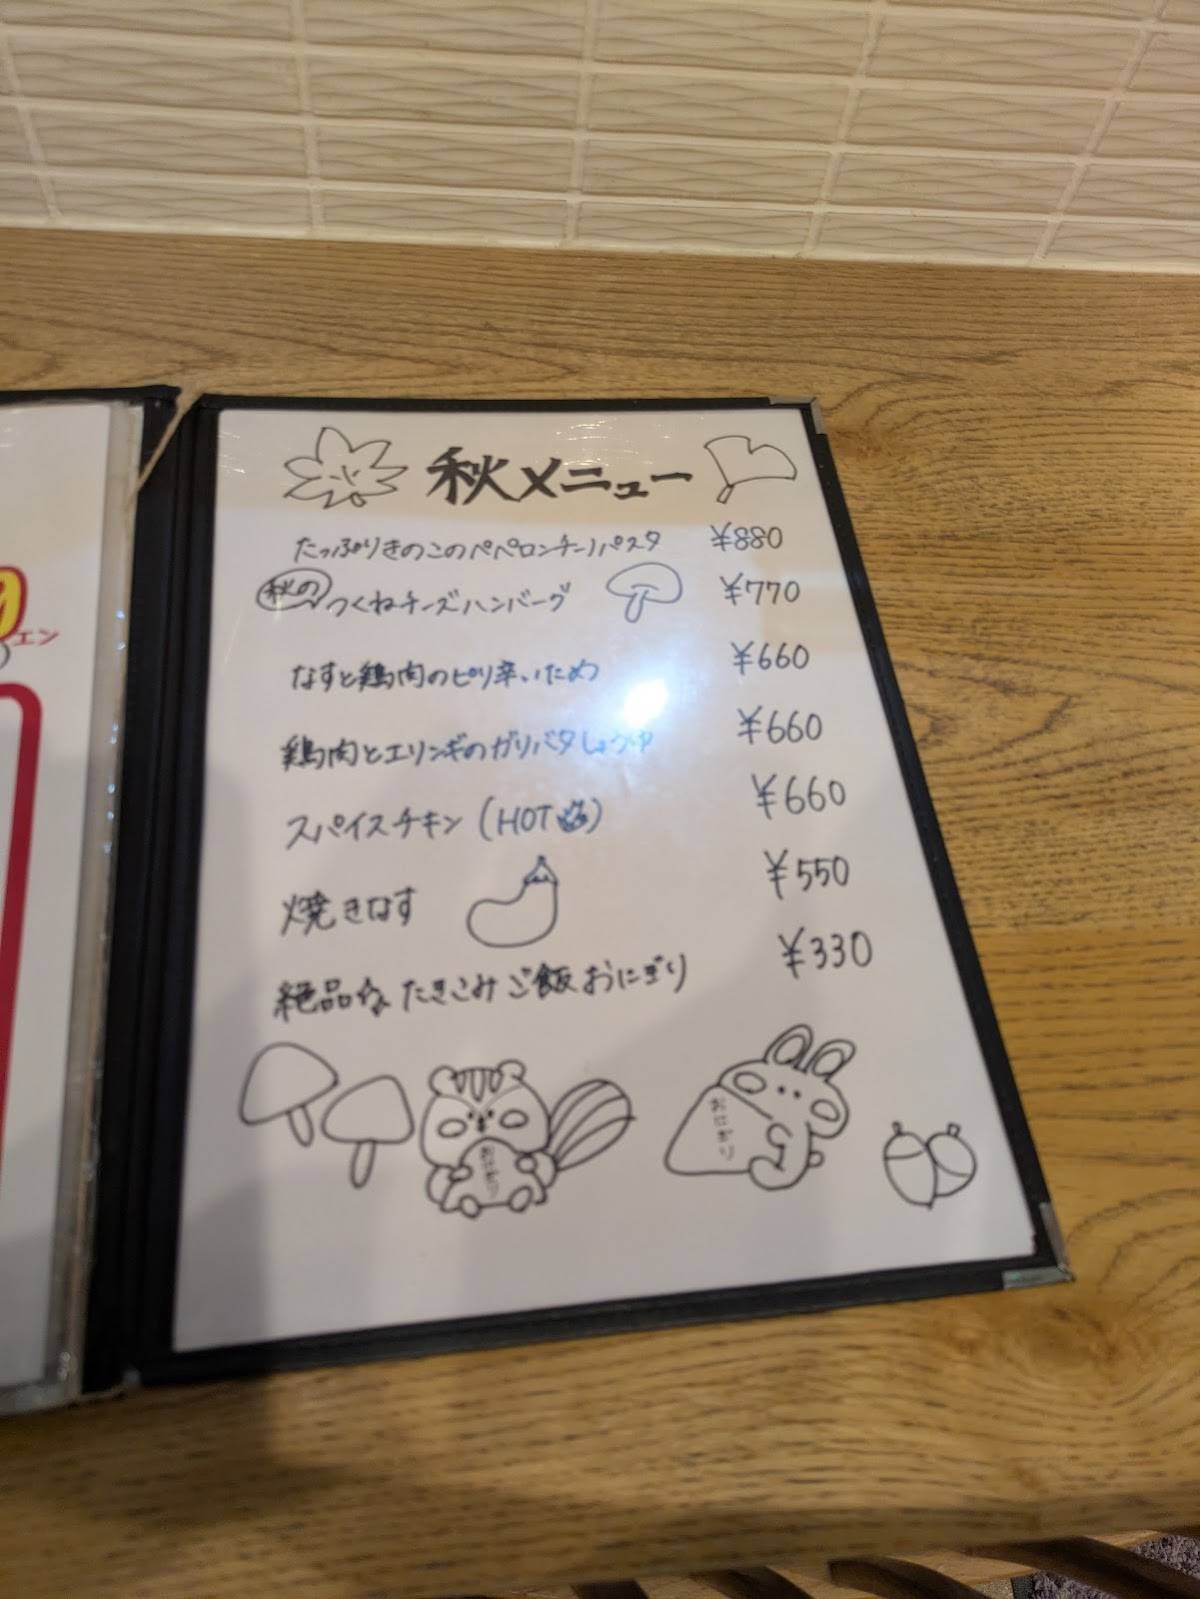 エン
秋メニュー
たっぷりきのこのペペロンチーノパスタ ¥880
秋の つくねチーズハンバーグ ¥770
なすと鶏肉のピリ辛いため ¥660
鶏肉とエリンギのガリバタしょうゆ ¥660
スパイスチキン (HOT) ¥660
焼きなす ¥550
絶品な たきこみご飯おにぎり ¥330
おにぎり
おにぎり